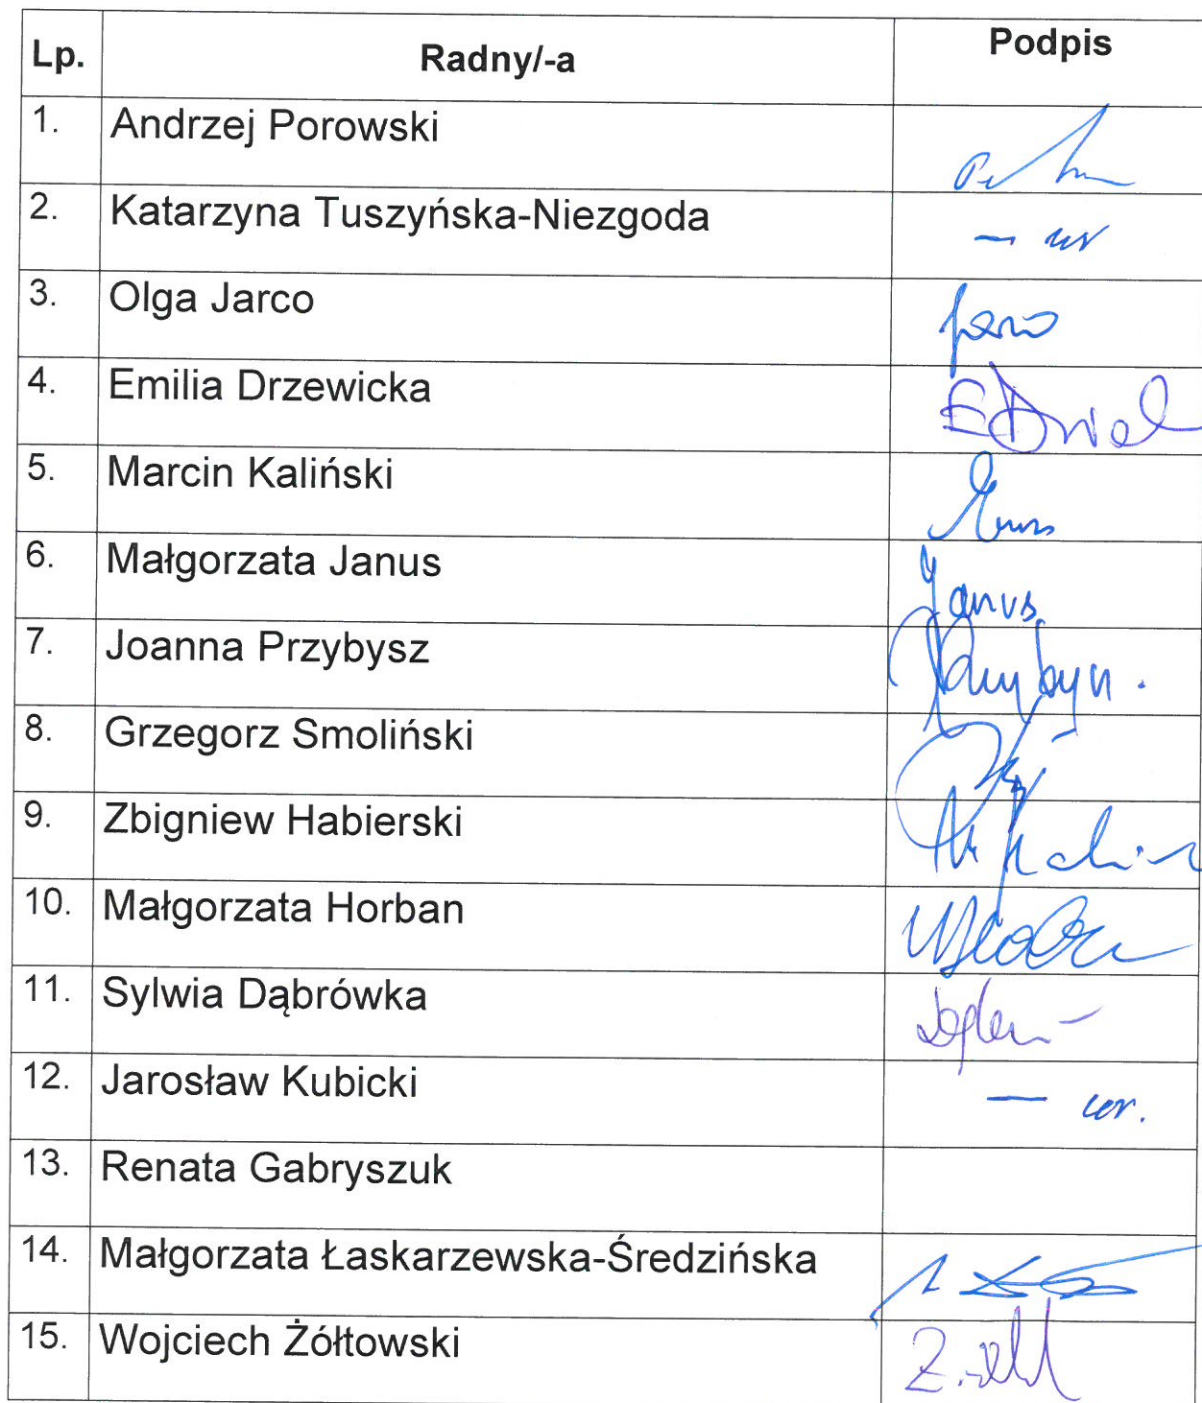 Lp. Radny/-a Podpis
1. Andrzej Porowski
2. Katarzyna Tuszyńska-Niezgoda
3. Olga Jarco
4. Emilia Drzewicka
5. Marcin Kaliński
6. Małgorzata Janus Janus
7. Joanna Przybysz
8. Grzegorz Smoliński
9. Zbigniew Habierski
10. Małgorzata Horban
11. Sylwia Dąbrówka
12. Jarosław Kubicki
13. Renata Gabryszuk
14. Małgorzata Łaskarzewska-Średzińska
15. Wojciech Żółtowski